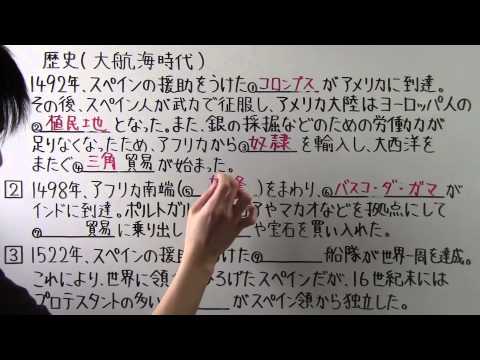 歴史(大航海時代)
1492年、スペインの援助をうけた①コロンブスがアメリカに到達。
その後、スペイン人が武力で征服し、アメリカ大陸はヨーロッパ人の
②植民地となった。また、銀の採掘などのための労働力が
足りなくなったため、アフリカから③奴隷を輸入し、大西洋を
またぐ④三角貿易が始まった。
2 1498年、アフリカ南端(⑤ )をまわり、⑥バスコ・ダ・ガマが
インドに到達。ポルトガル アやマカオなどを拠点にして
貿易に乗り出し や宝石を買い入れた。
3 1522年、スペインの援助 けた⑨ 船隊が世界一周を達成。
これにより、世界に領 ろげたスペインだが、16世紀末には
プロテスタントの多い がスペイン領から独立した。